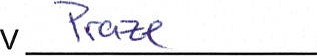 V Praze